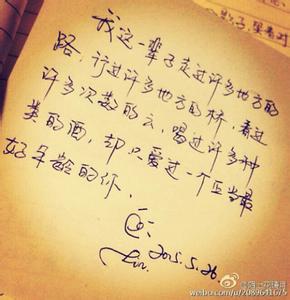 我这一辈子走过许多地方的
路，行过许多地方的桥，看过
许多次数的云，喝过许多种
类的酒，却只爱过一个正当最
好年龄的你。
2015.5.26
weibo.com/u/2089641675